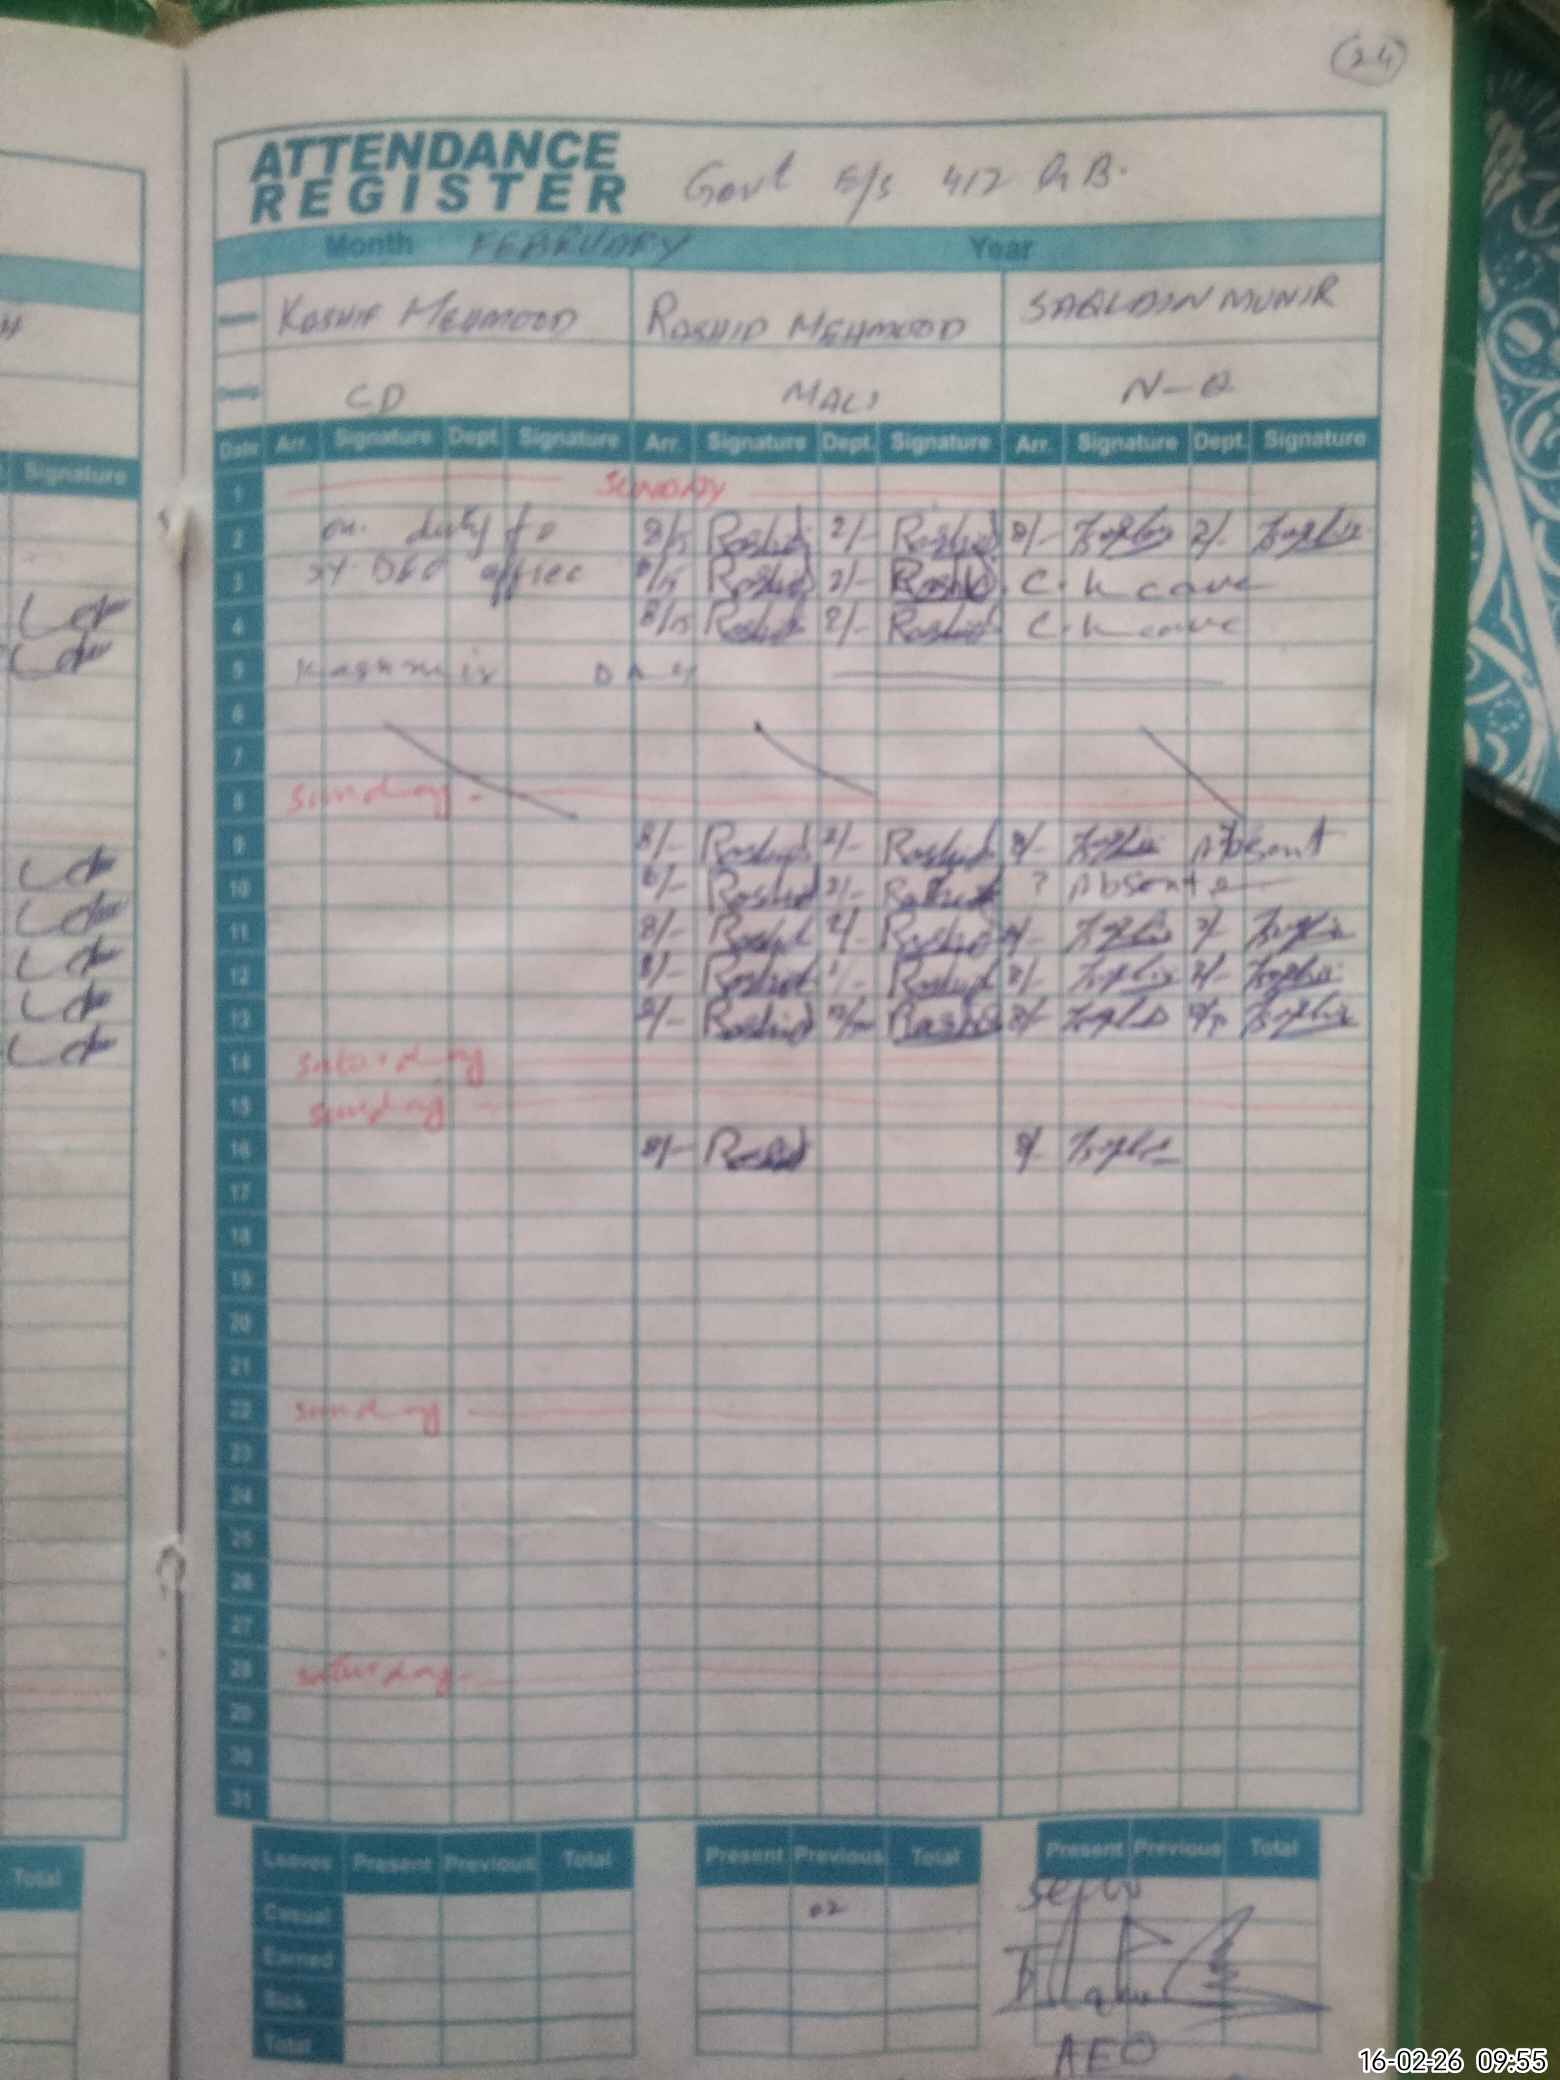 24
ATTENDANCE
REGISTER
Govt E/s 412 G.B.
Month FEBRUARY Year
KASHIF MEHMOOD RASHID MEHMOOD SAQLAIN MUNIR
CD MALI N-Q
Date Arr. Signature Dept Signature Arr. Signature Dept. Signature Arr. Signature Dept. Signature
1 SUNDAY
2 on duty to 8/15 Rashid 2/- Rashid 8/- 2/-
3 office 8/15 Rashid 2/- Rashid C. Leave
4 8/15 Rashid 2/- Rashid C. Leave
5 Kashmir DAY
6
7
8 Sunday
9 8/- Rashid 2/- Rashid 8/- Absent
10 8/- Rashid 2/- Rashid ? Absent
11 8/- Rashid 2/- Rashid 8/- 2/-
12 8/- Rashid 2/- Rashid 8/- 2/-
13 8/- Rashid Rashid 8/-
14 Saturday
15 Sunday
16 8/- Rashid 8/-
17
18
19
20
21
22 Sunday
23
24
25
26
27
28 Saturday
29
30
31
Leaves Present Previous Total Present Previous Total Present Previous Total
Casual 02
Earned
Sick
Total
AEO
Signature
Total
16-02-26 09:55